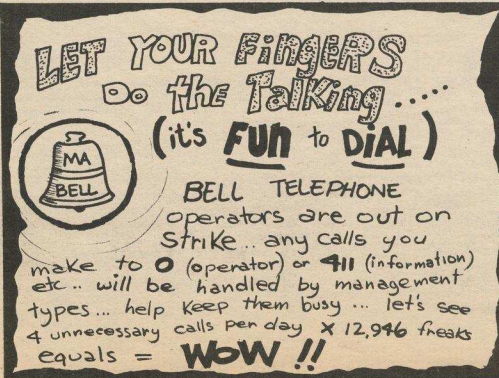 LET YOUR FINGERS
Do the Talking .....
(it's FUN to DIAL)
MA
BELL
BELL TELEPHONE
operators are out on
strike .. any calls you
make to 0 (operator) or 411 (information)
etc .. will be handled by management
types ... help keep them busy ... let's see
4 unnecessary calls per day x 12,946 freaks
equals = WOW !!